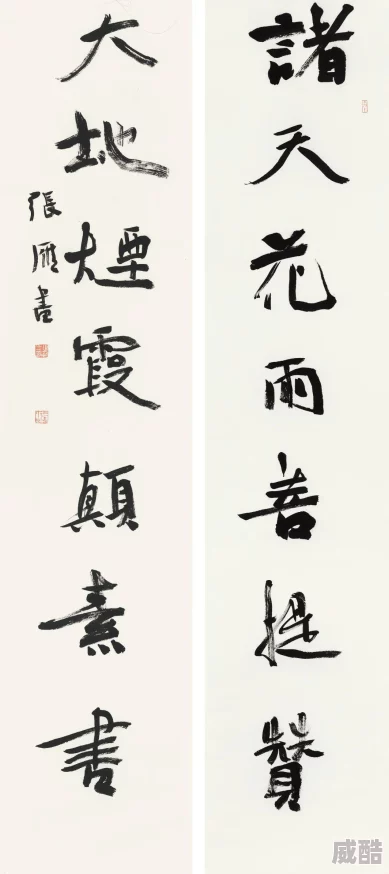 諸天花雨菩提贊
大地煙霞顛素書
張雁書
威酷